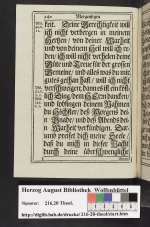 Morgendlicher
keit. Deine Gerechtigkeit will
ich nicht verbergen in meinem
Hertzen / von deiner Warheit
und von deinem Heil will ich re-
den / ich will nicht verhelen deine
Güte und Treue für der grossen
Gemeine / und alles was du mir
gutes gethan hast / will ich nicht
vergessen /
Ding, dem HErrn dancken /
und lobsingen deinem Nahmen
du Höchster / des Morgens dei-
ne Gnade / und des Abends dei-
ne Warheit verkündigen. Dar-
umb preiset dich meine Seele /
daß du mich in dieser Nacht
durch deine überschwengliche
Herzog August Bibliothek Wolfenbüttel
Signatur: 216.20 Theol.
http://diglib.hab.de/drucke/216-20-theol/start.htm